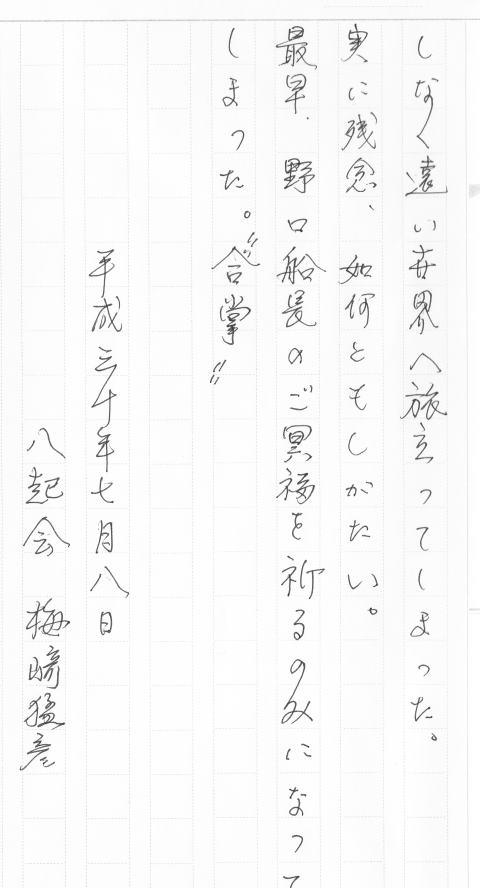 しなく遠い世界へ旅立ってしまった。
実に残念、如何ともしがたい。
最早、野口船長のご冥福を祈るのみになって
しまった。〝合掌〟
平成三十年七月八日
八起会　梅崎猛彦